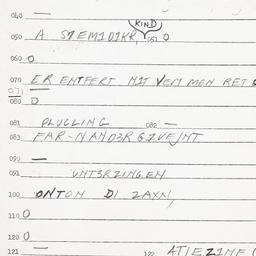 040 —
KIND
050 A STEMIDIKR, 051 O
060 O
070 ER ENTFERT MIT VEM MON RET
071 —
080 O
081 PLUGLING 082 —
083 FAR-NAND3RGIVEJNT
090 —
091 UNT3RZINGEN
100 ONTON DI ZAXN,
110 O
120 O
121 — 122 ATIEZINE